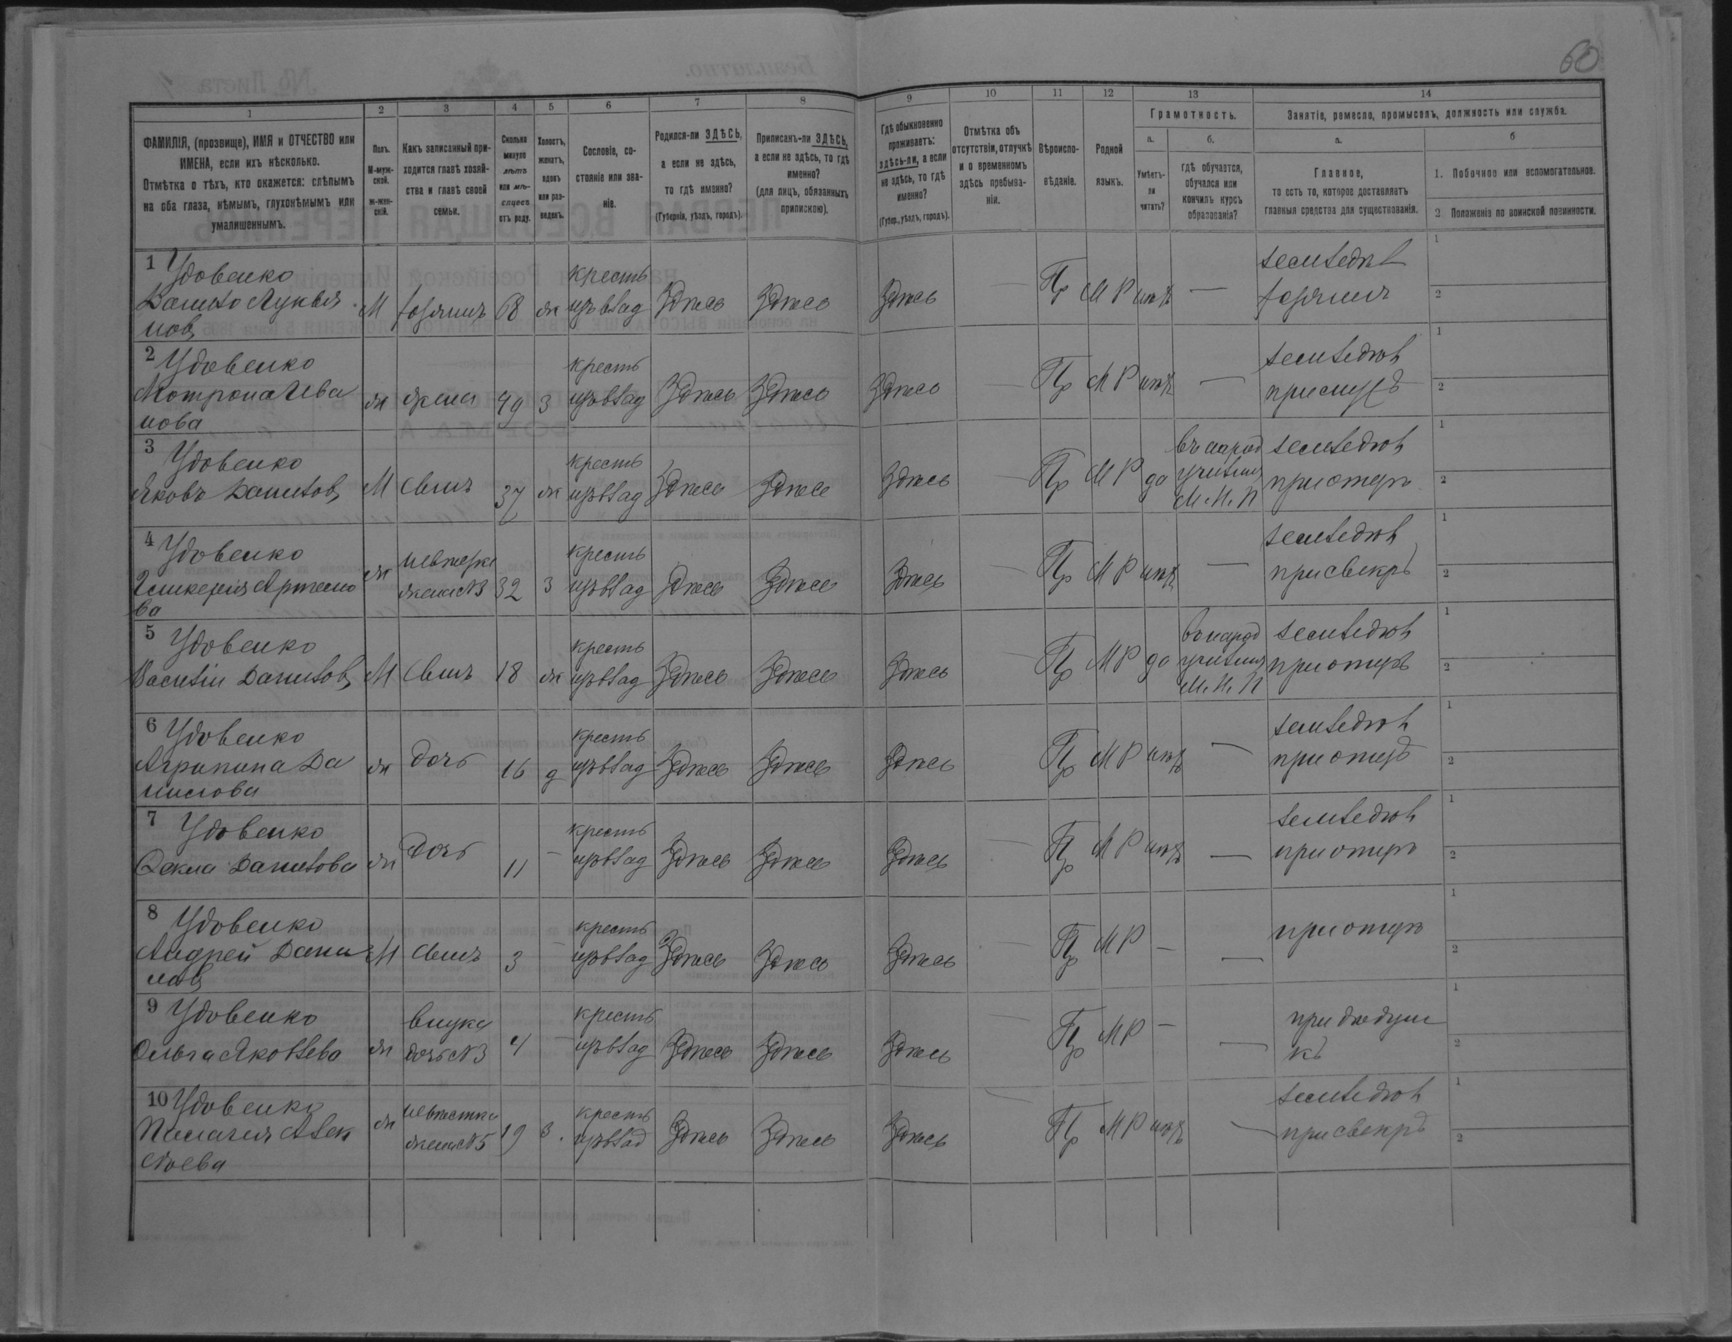 60
1 2 3 4 5 6 7 8 9 10 11 12 13 14
ФАМИЛІЯ, (прозвище), ИМЯ и ОТЧЕСТВО или
ИМЕНА, если ихъ нѣсколько.
Отмѣтка о тѣхъ, кто окажется: слѣпымъ
на оба глаза, нѣмымъ, глухонѣмымъ или
умалишеннымъ.
Полъ.
М-муж-
ской.
Ж-жен-
скій.
Какъ записанный при-
ходится главѣ хозяй-
ства и главѣ своей
семьи.
Сколько
минуло
лѣтъ
или мѣ-
сяцевъ
отъ роду.
Холостъ,
женатъ,
вдовъ
или раз-
веденъ.
Сословіе, со-
стояніе или зва-
ніе.
Родился-ли ЗДѢСЬ,
а если не здѣсь,
то гдѣ именно?
(Губернія, уѣздъ, городъ).
Приписанъ-ли ЗДѢСЬ,
а если не здѣсь, то гдѣ
именно?
(для лицъ, обязанныхъ
припискою).
Гдѣ обыкновенно
проживаетъ:
здѣсь-ли, а если
не здѣсь, то гдѣ
именно?
(Губер., уѣздъ, городъ).
Отмѣтка объ
отсутствіи, отлучкѣ
и о временномъ
здѣсь пребыва-
ніи.
Вѣроиспо-
вѣданіе.
Родной
языкъ.
Грамотность.
а.
Умѣетъ-
ли
читать?
б.
гдѣ обучается,
обучался или
кончилъ курсъ
образованія?
Занятіе, ремесло, промыселъ, должность или служба.
а.
Главное,
то есть то, которое доставляетъ
главныя средства для существованія.
б
1. Побочное или вспомогательное.
2. Положеніе по воинской повинности.
1 Удовенко
Данило Лукья
новъ
М хозяинъ 68 ж кресть
изъ влад Здѣсь Здѣсь Здѣсь — Пр М Р нѣтъ —
земледѣл
хозяинъ
1
2
2 Удовенко
Мотрона Ива
нова
ж жена 49 З кресть
изъ влад Здѣсь Здѣсь Здѣсь — Пр М Р нѣтъ —
земледѣл
при мужѣ
1
2
3 Удовенко
Яковъ Даниловъ
М сынъ 37 ж кресть
изъ влад Здѣсь Здѣсь Здѣсь — Пр М Р да
въ народ
училищ
М. Н. П
земледѣл
при отцѣ
1
2
4 Удовенко
Артемо
ва
ж невѣстка
жена №3 32 З кресть
изъ влад Здѣсь Здѣсь Здѣсь — Пр М Р нѣтъ —
земледѣл
при свекрѣ
1
2
5 Удовенко
Василій Даниловъ
М сынъ 18 ж кресть
изъ влад Здѣсь Здѣсь Здѣсь — Пр М Р да
в народ
училищ
М. Н. П
земледѣл
при отцѣ
1
2
6 Удовенко
Агрипина Да
нилова
ж дочь 16 д кресть
изъ влад Здѣсь Здѣсь Здѣсь — Пр М Р нѣтъ —
земледѣл
при отцѣ
1
2
7 Удовенко
Ѳекла Данилова
ж дочь 11 — кресть
изъ влад Здѣсь Здѣсь Здѣсь — Пр М Р нѣтъ —
земледѣл
при отцѣ
1
2
8 Удовенко
Андрей Дани
ловъ
М сынъ 3 — кресть
изъ влад Здѣсь Здѣсь Здѣсь — Пр М Р — —
при отцѣ
1
2
9 Удовенко
Ольга Яковлева
ж внука
дочь №3 4 — кресть
изъ влад Здѣсь Здѣсь Здѣсь — Пр М Р — —
при дѣдуш
кѣ
1
2
10 Удовенко
Пелагея Алек
сѣева
ж невѣстка
жена №5 19 З. кресть
изъ влад Здѣсь Здѣсь Здѣсь — Пр М Р нѣтъ —
земледѣл
при свекрѣ
1
2